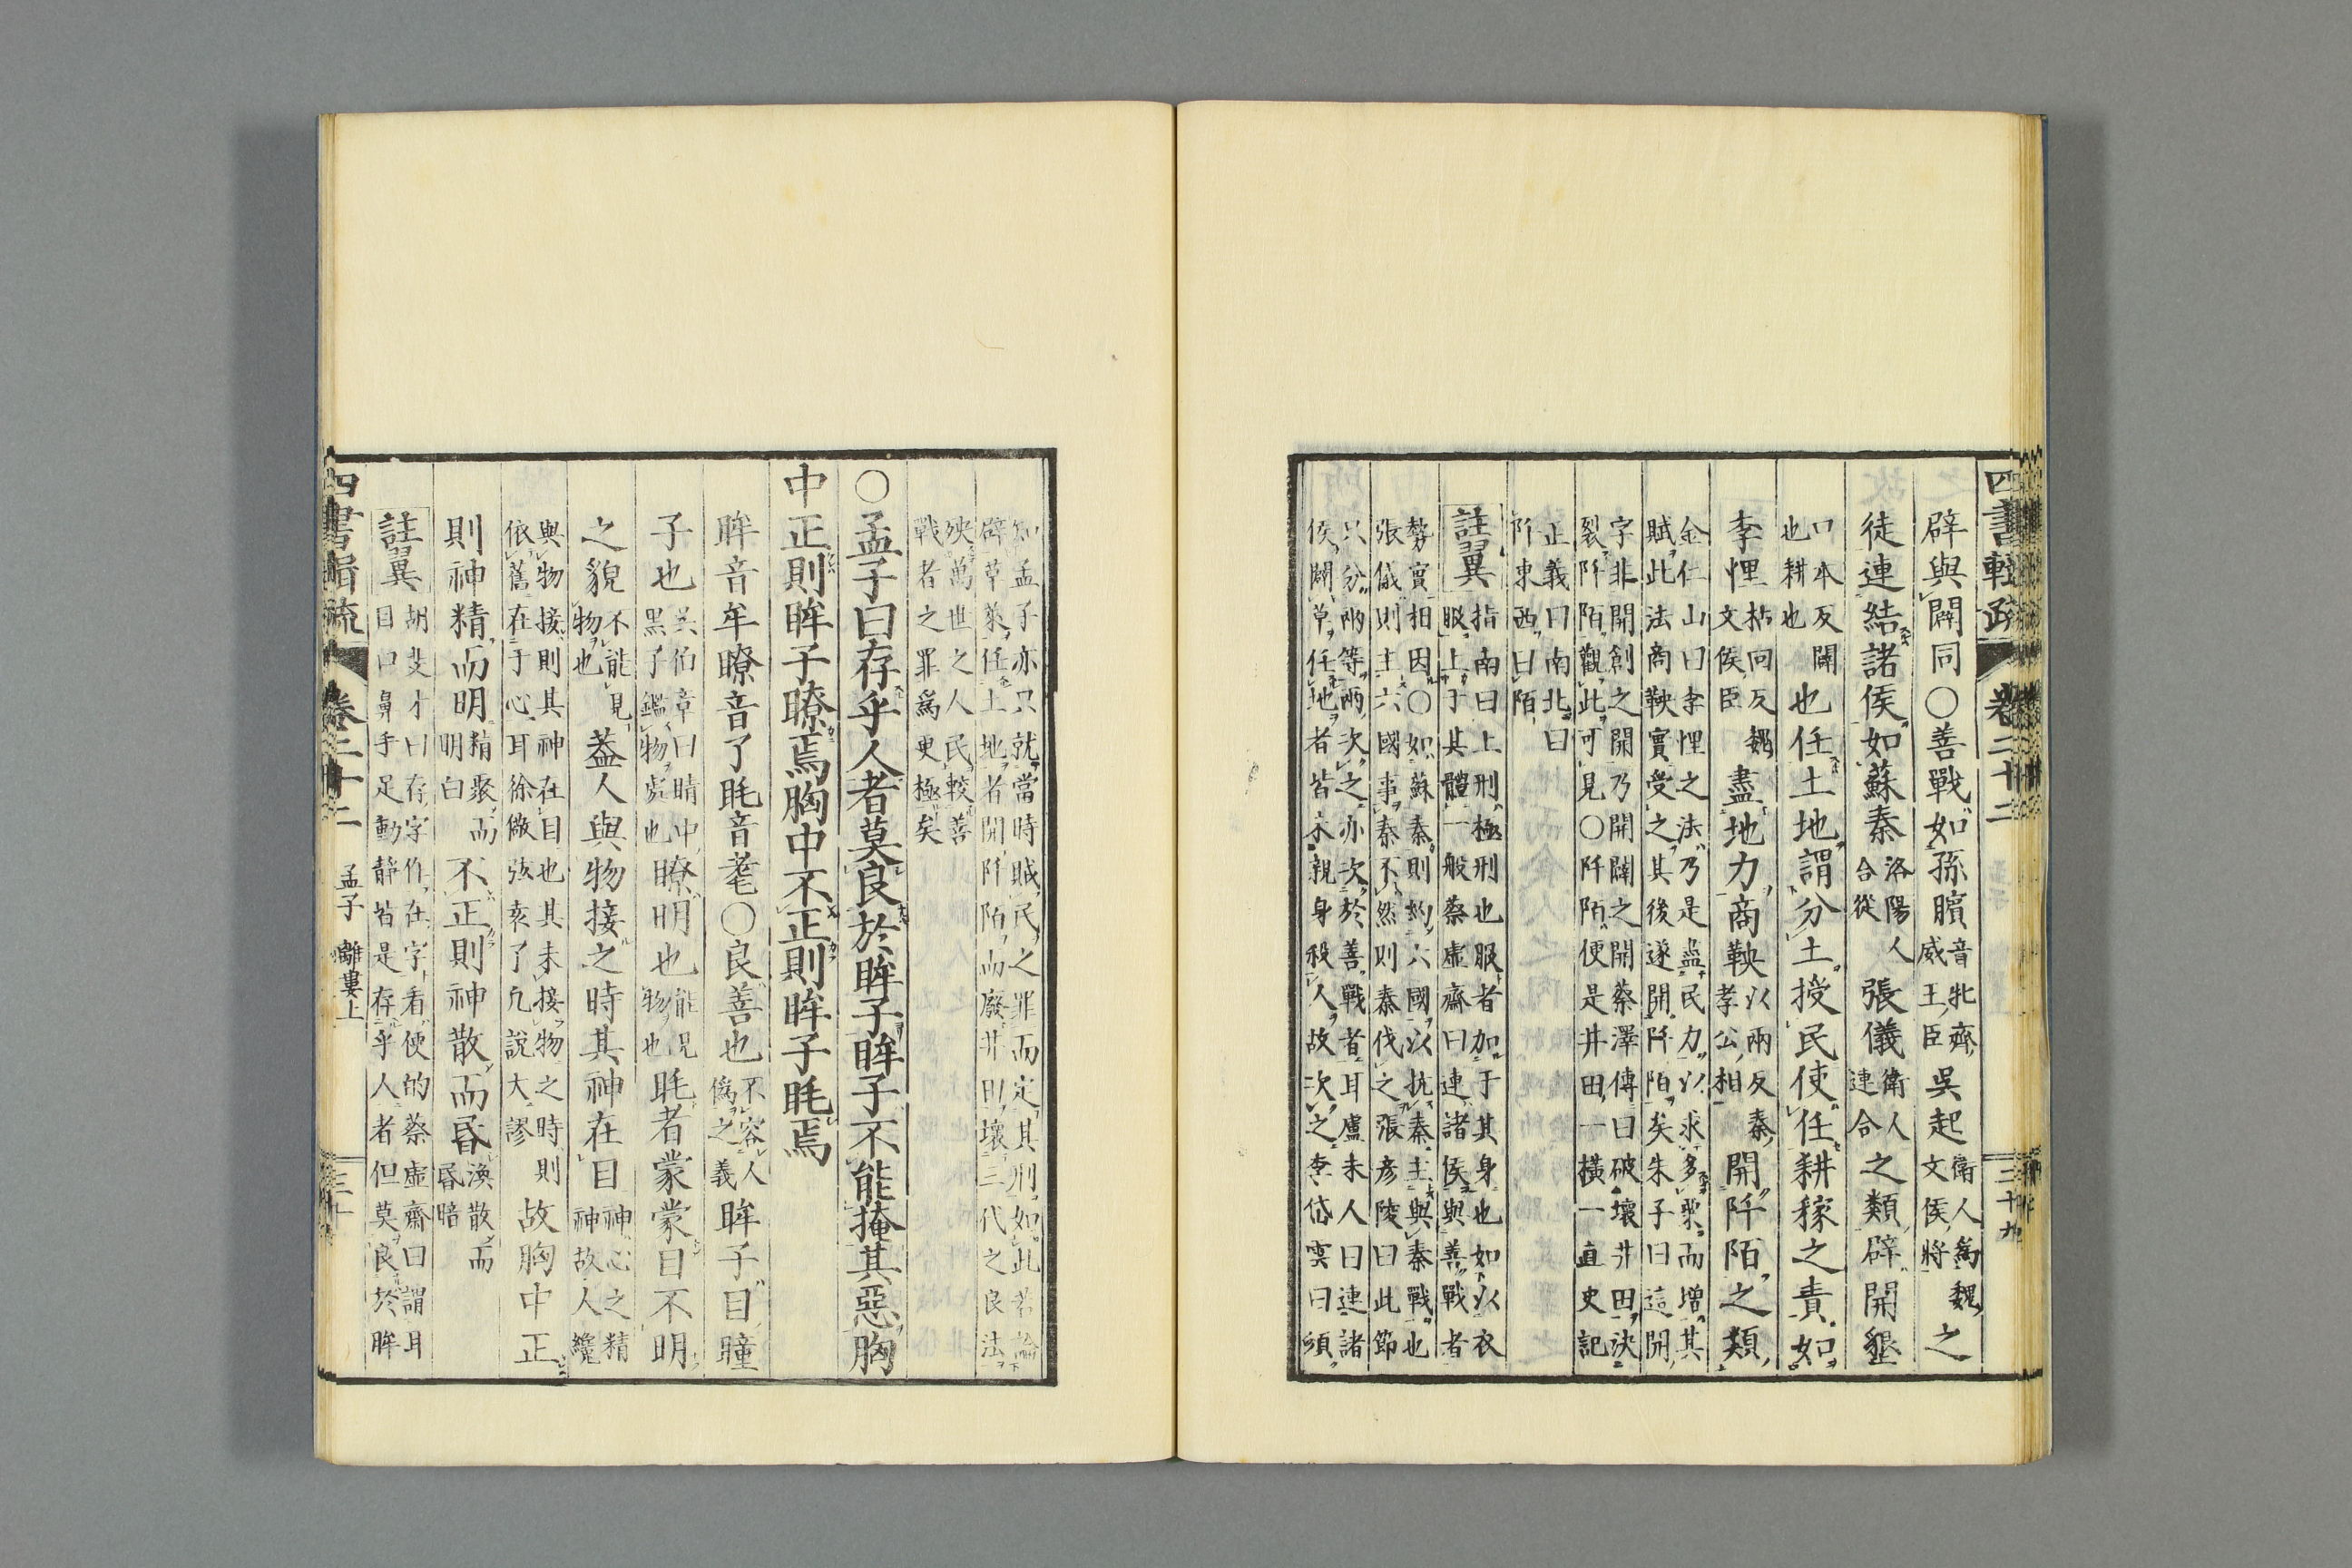 四書輯疏 卷二十二 三十九
辟與闢同○善戰如孫臏音牝齊威王臣吳起衛人爲魏文侯將之
徒連結諸侯如蘇秦洛陽人合從張儀衛人連合之類辟開墾
口本反闢也耕也也任土地謂分土授民使任耕稼之責如
李悝枯回反魏文侯臣盡地力商鞅以兩反秦孝公相開阡陌之類
金仁山曰李悝之法乃是盡民力以求多粟而增其
賦此法商鞅實受之其後遂開阡陌矣朱子曰這開
字非開創之開乃開闢之開蔡澤傳曰破壞井田決
裂阡陌觀此可見○阡陌便是井田一橫一直史記
正義曰南北曰
阡東西曰陌
註翼指南曰上刑極刑也服者加于其身也如以衣
服上于其體一般蔡虛齋曰連諸侯與善戰者
勢實相因○如蘇秦則約六國以抗秦主與秦戰也
張儀則主六國事秦不然則秦伐之張彥陵曰此節
只分兩等兩次之亦次於善戰者耳盧未人曰連諸
侯闢草任地者皆未親身殺人故次之李岱雲曰須
知孟子亦只就當時賊民之罪而定其刑如此若論
辟草萊任土地者開阡陌而廢井田壞三代之良法
殃萬世之人民較善
戰者之罪爲更極矣
○孟子曰存乎人者莫良於眸子眸子不能掩其惡胸
中正則眸子瞭焉胸中不正則眸子眊焉
眸音牟瞭音了眊音耄○良善也不容人僞之義眸子目瞳
子也吳伯章曰睛中黑子鑑物處也瞭明也能見物也眊者蒙蒙目不明
之貌不能見物也蓋人與物接之時其神在目神心之精神故人纔
與物接則其神在目也其未接物之時則
依舊在于心耳徐儆弦亥了凡說大謬故胸中正
則神精而明精聚而明白不正則神散而昏渙散而昏暗
註翼胡斐才曰存字作在字看便的蔡虛齋曰謂耳
目口鼻手足動靜皆是存乎人者但莫良於眸
四書輯疏 卷二十二 孟子 離婁上